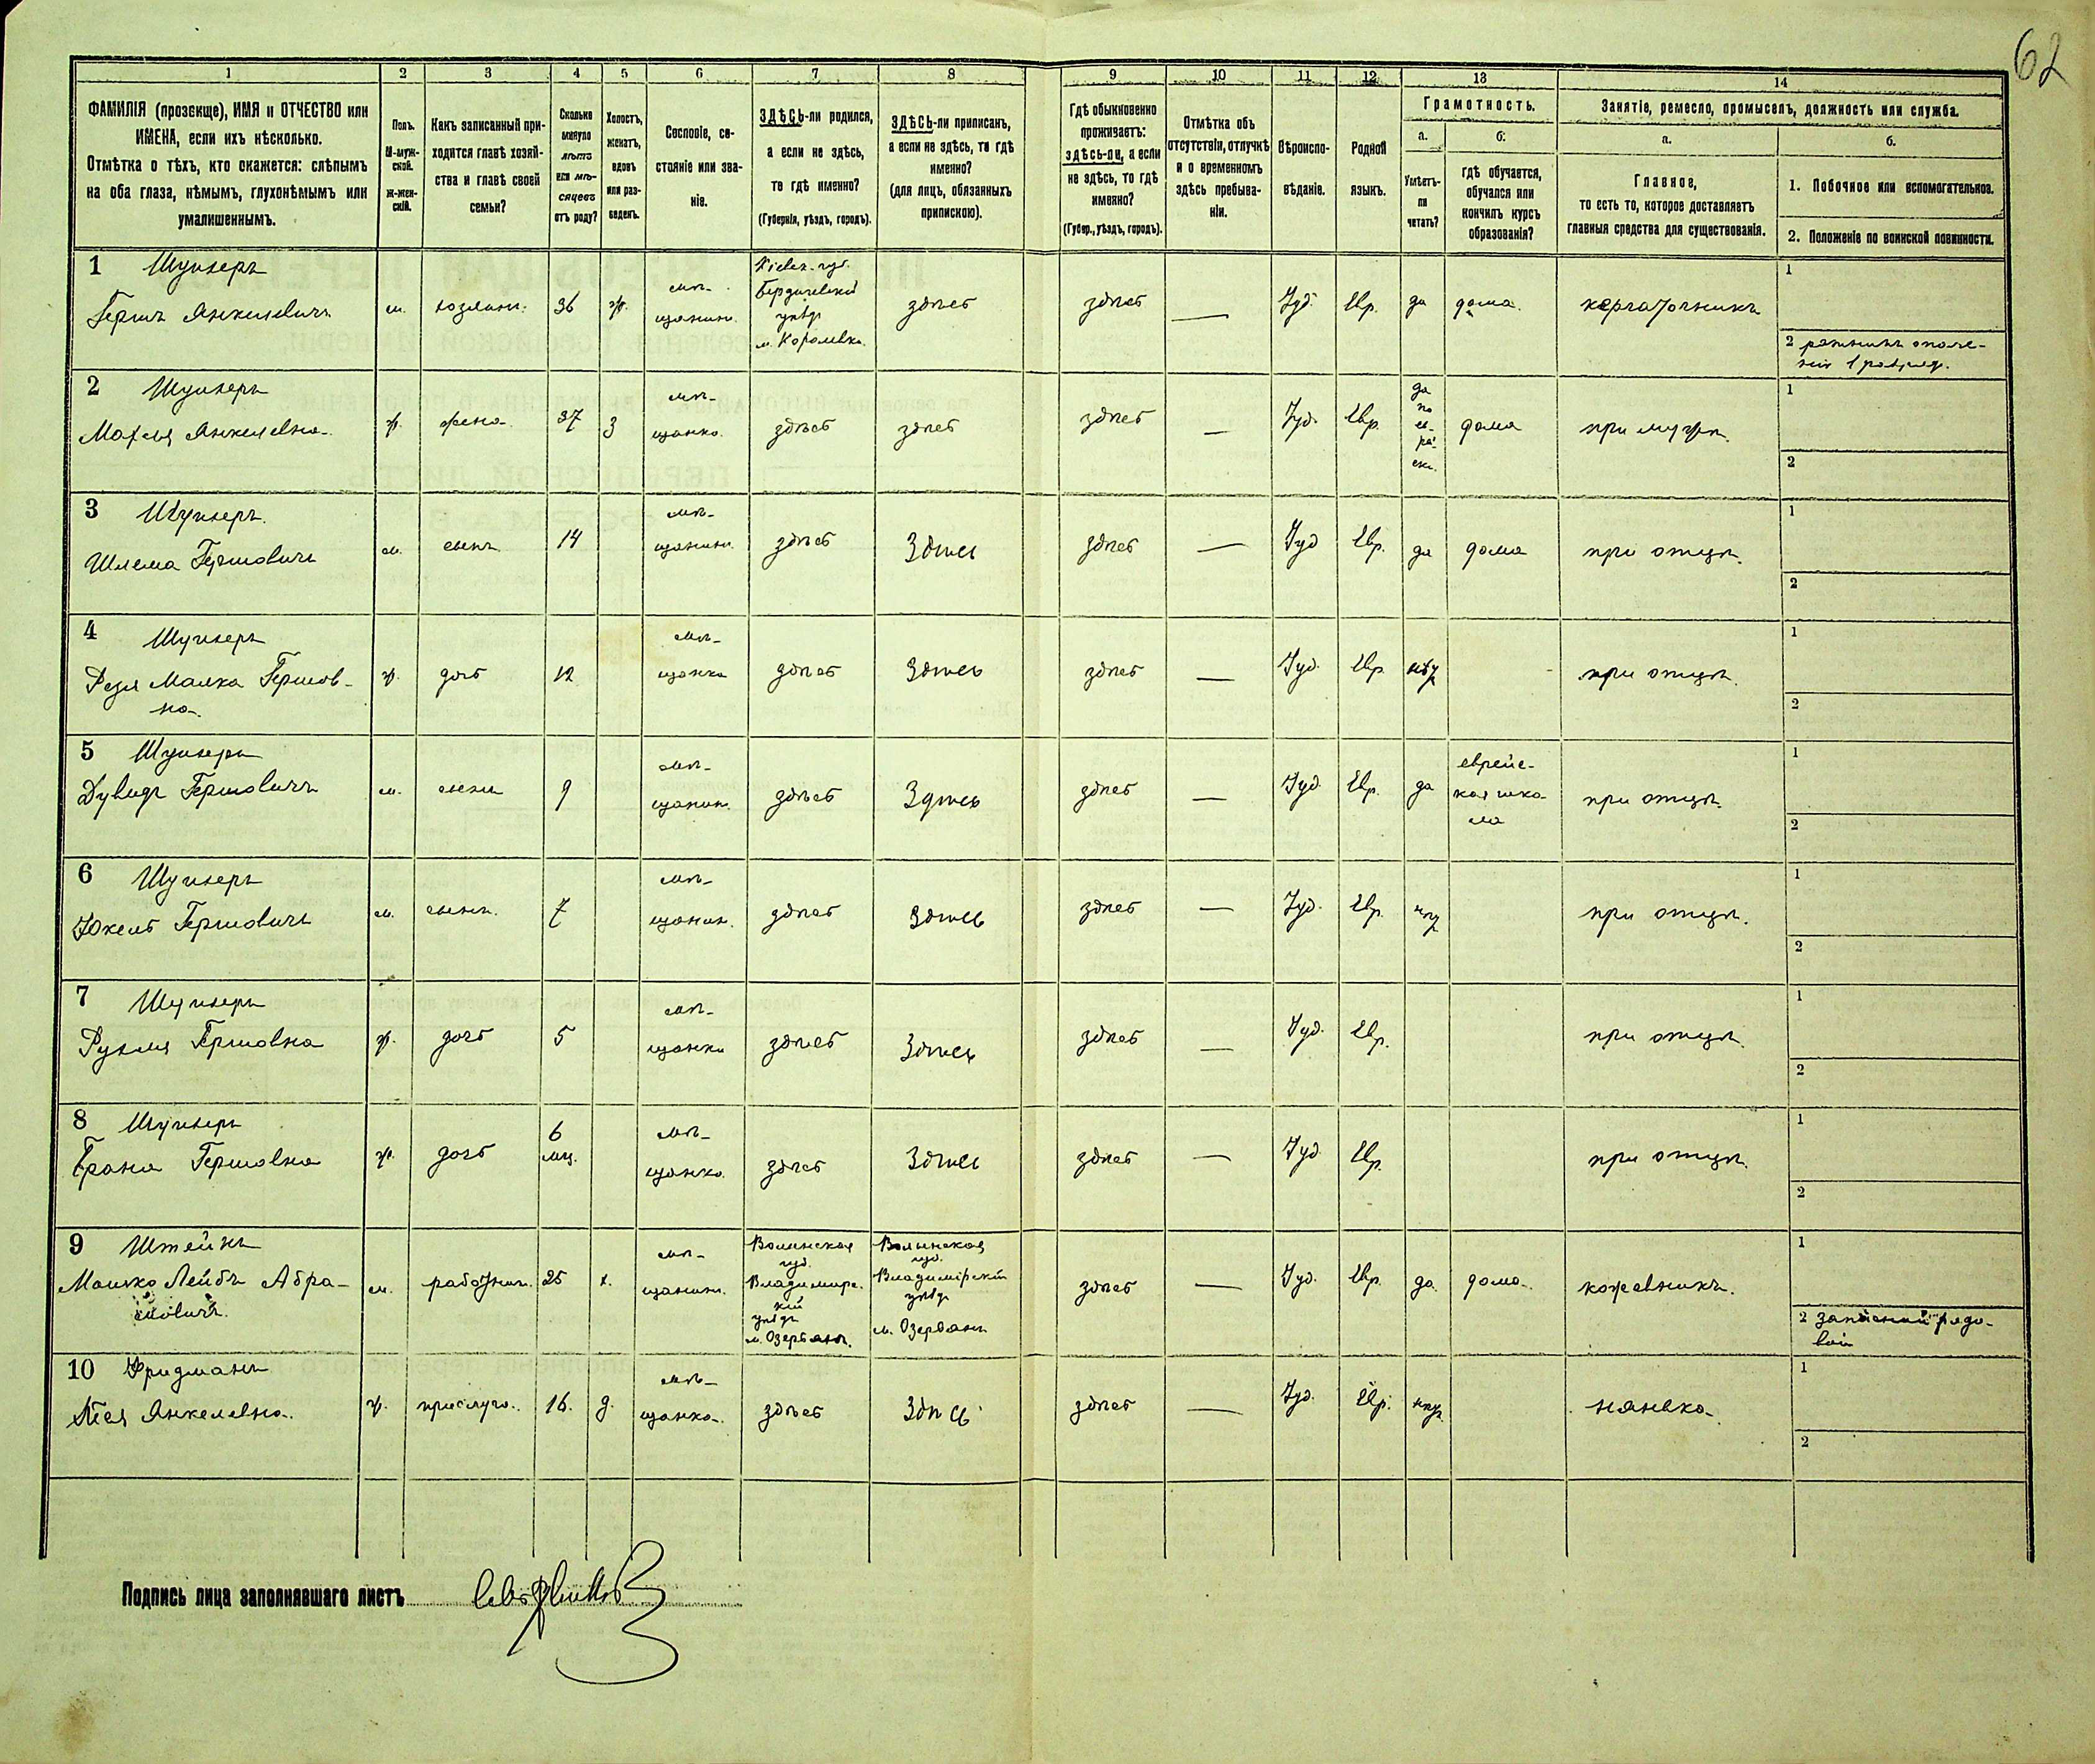 62
1 2 3 4 5 6 7 8 9 10 11 12 13 14
ФАМИЛІЯ (прозвище), ИМЯ и ОТЧЕСТВО или
ИМЕНА, если ихъ нѣсколько.
Отмѣтка о тѣхъ, кто окажется: слѣпымъ
на оба глаза, нѣмымъ, глухонѣмымъ или
умалишеннымъ.
Полъ.
М-муж-
ской.
Ж-жен-
скій.
Какъ записанный при-
ходится главѣ хозяй-
ства и главѣ своей
семьи?
Сколько
минуло
лѣтъ
или мѣ-
сяцевъ
отъ роду?
Холостъ,
женатъ,
вдовъ
или раз-
веденъ.
Сословіе, со-
стояніе или зва-
ніе.
ЗДѢСЬ-ли родился,
а если не здѣсь,
то гдѣ именно?
(Губернія, уѣздъ, городъ).
ЗДѢСЬ-ли приписанъ,
а если не здѣсь, то гдѣ
именно?
(для лицъ, обязанныхъ
припискою).
Гдѣ обыкновенно
проживаетъ:
здѣсь-ли, а если
не здѣсь, то гдѣ
именно?
(Губер., уѣздъ, городъ).
Отмѣтка объ
отсутствіи, отлучкѣ
и о временномъ
здѣсь пребыва-
ніи.
Вѣроиспо-
вѣданіе.
Родной
языкъ.
Грамотность.
а.
Умѣетъ-
ли
читать?
б.
гдѣ обучается,
обучался или
кончилъ курсъ
образованія?
Занятіе, ремесло, промыселъ, должность или служба.
а.
Главное,
то есть то, которое доставляетъ
главныя средства для существованія.
б.
1. Побочное или вспомогательное.
2. Положеніе по воинской повинности.
1 Шункеръ
Гершъ Янкелевичъ
м.
хозяинъ.
36
ж.
мѣ-
щанинъ.
Кіевск. губ.
Бердичевскій
уѣзд.
м. Королевка.
здѣсь
здѣсь
—
Іуд.
Евр.
да
дома.
1
2 ратникъ опол-
ченія 1 разряд.
2 Шункеръ
Махля Янкелевна.
ж.
жена.
37
З
мѣ-
щанка.
здѣсь
здѣсь
здѣсь
—
Іуд.
Евр.
да
по
ев-
рей
ски.
дома
при мужѣ.
1
2
3 Шункеръ.
Шлема Гершовичъ
м.
сынъ.
14
мѣ-
щанинъ.
здѣсь
Здѣсь
здѣсь
—
Іуд
Евр.
да
дома
при отцѣ.
1
2
4 Шункеръ
Рейзя Малка Гершов-
на.
ж.
дочь
12
мѣ-
щанка
здѣсь
Здѣсь
здѣсь
—
Іуд.
Евр.
нѣт
при отцѣ.
1
2
5 Шункеръ
Дувидъ Гершовичъ
м.
сынъ
9
мѣ-
щанин.
здѣсь
Здѣсь
здѣсь
—
Іуд.
Евр.
да
еврейс-
кая шко-
ла
при отцѣ.
1
2
6 Шункеръ
Юкель Гершовичъ
м.
сынъ.
7
мѣ-
щанин.
здѣсь
Здѣсь
здѣсь
—
Іуд.
Евр.
нѣт
при отцѣ.
1
2
7 Шункеръ
Рухля Гершовна
ж.
дочь
5
мѣ-
щанка
здѣсь
Здѣсь
здѣсь
—
Іуд.
Евр.
при отцѣ.
1
2
8 Шункеръ
Брана Гершовна
ж.
дочь
6
мц.
мѣ-
щанка.
здѣсь
Здѣсь
здѣсь
—
Іуд.
Евр.
при отцѣ.
1
2
9 Штейнъ
Мошко Лейбъ Абра-
мовичъ.
м.
работник.
25
х.
мѣ-
щанинъ.
Волынская
губ.
Владимірс.
кій
уѣздъ
м. Озерянъ.
Волынская
губ.
Владимірскій
уѣзд.
м. Озерянъ
здѣсь
—
Іуд.
Евр.
да.
дома.
кожевникъ.
1
2 запасной рядо-
вой
10 Фридманъ
Янкелевна.
ж.
прислуга.
16.
д.
мѣ-
щанка.
здѣсь
Здѣсь
здѣсь
—
Іуд.
Евр.
нѣт.
нянька
1
2
Подпись лица заполнявшаго листъ